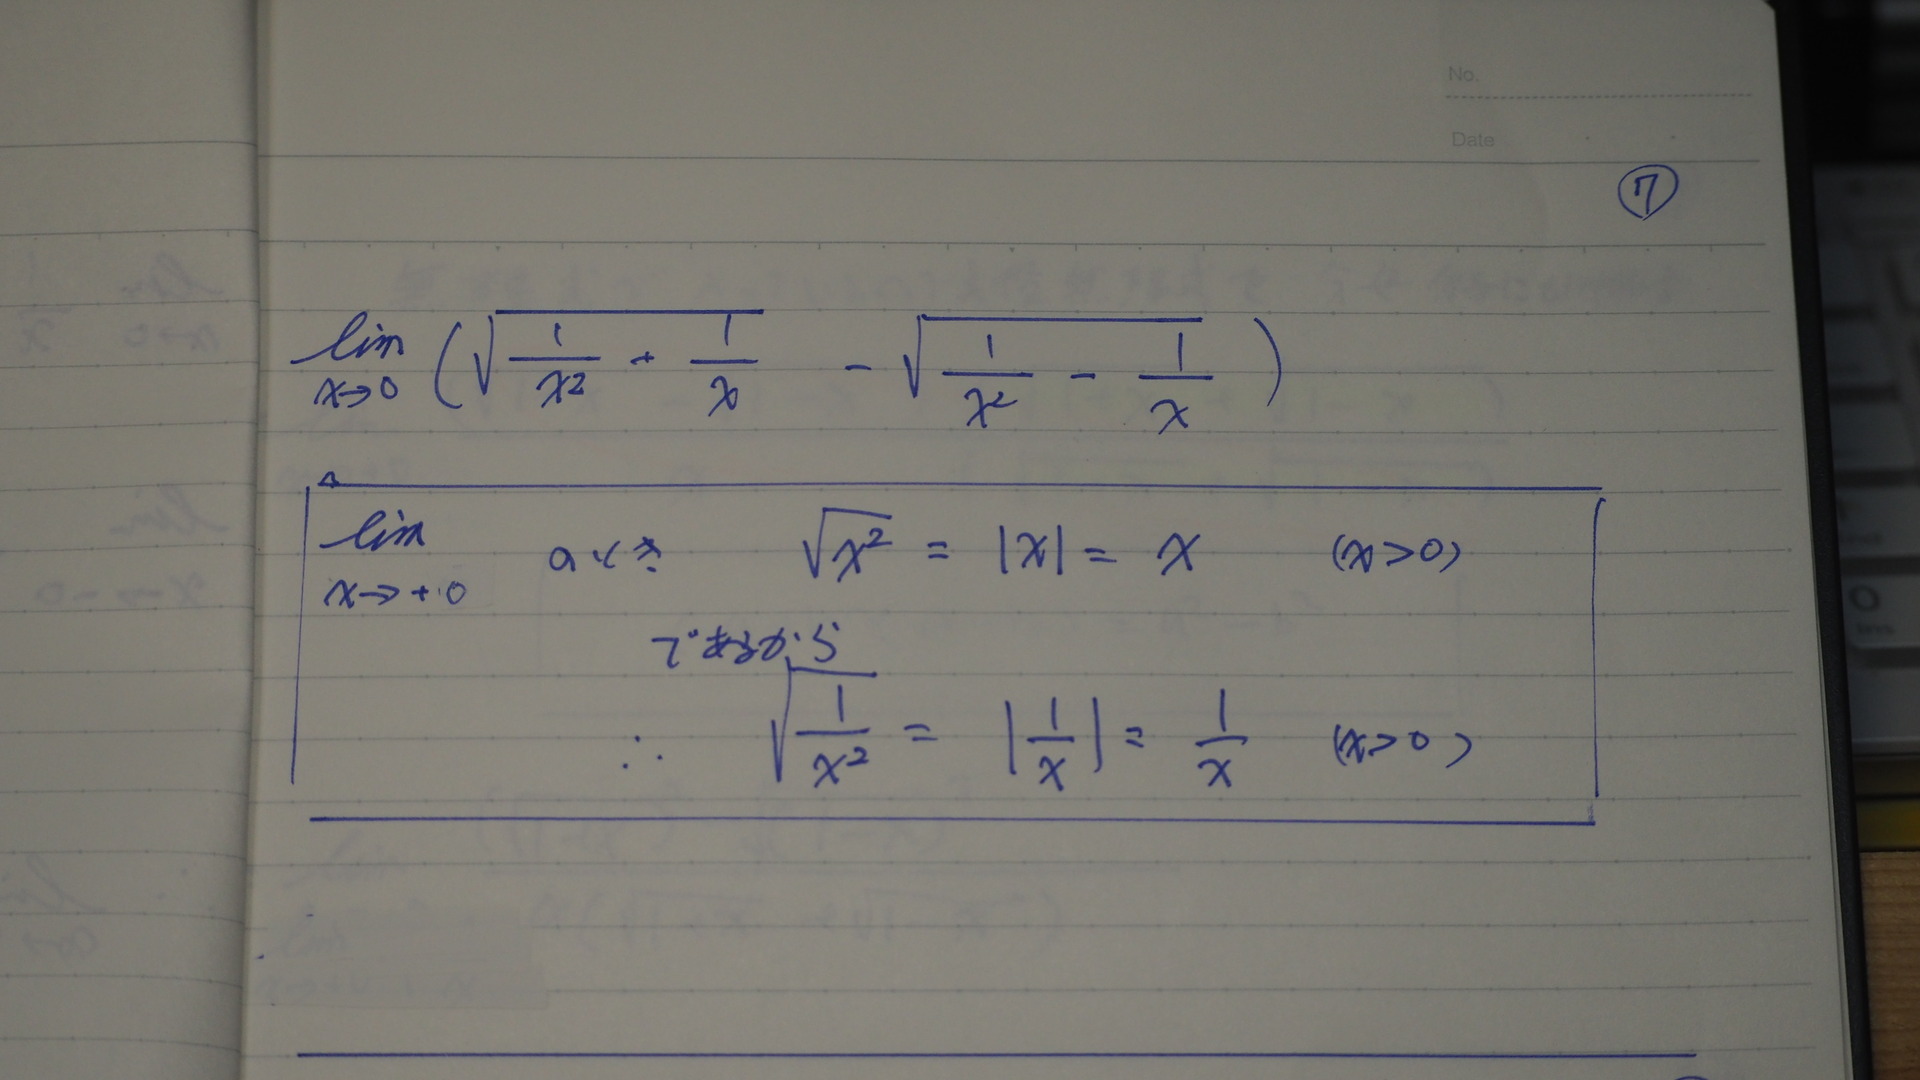 No.
Date
⑦
lim x→0 (√(1/x² + 1/x) - √(1/x² - 1/x))
lim x→+0 のとき √x² = |x| = x (x>0)
であるから
∴ √(1/x²) = |1/x| = 1/x (x>0)